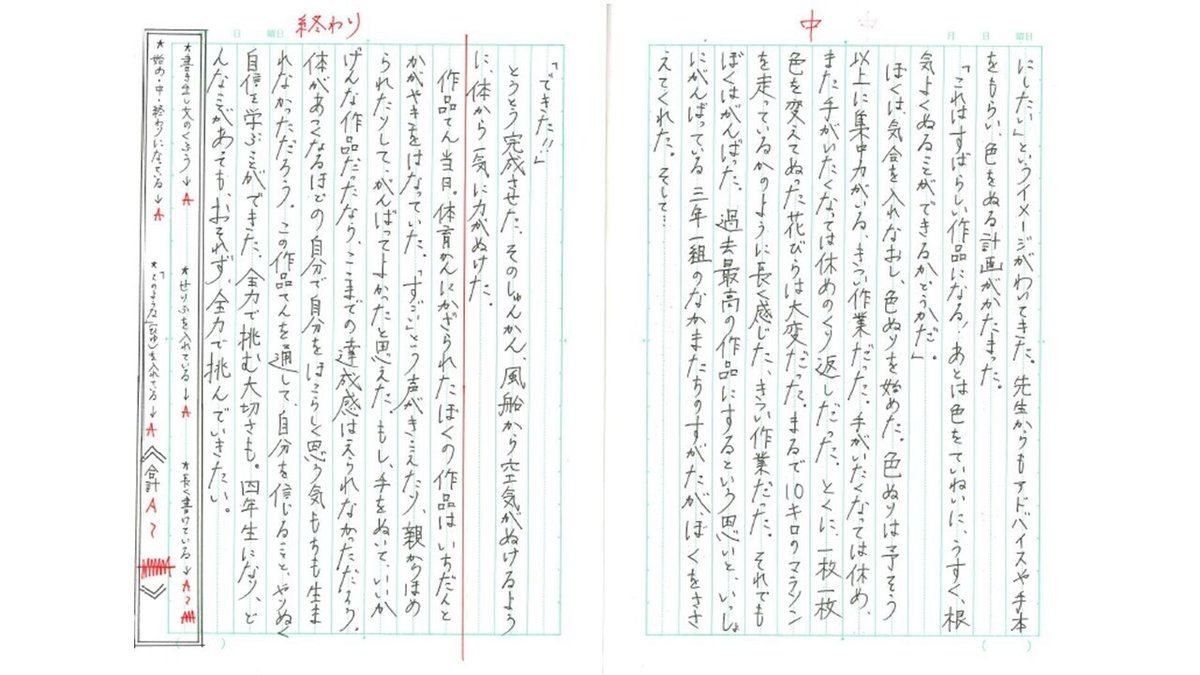 中
月 日 曜日
にしたい」というイメージがわいてきた。先生からもアドバイスや手本
をもらい、色をぬる計画がかたまった。
「これはすばらしい作品になる！あとは色をていねいに、うすく、根
気よくぬることができるかどうかだ」。
ぼくは、気合を入れなおし、色ぬりを始めた。色ぬりは予そう
以上に集中力がいる、きつい作業だった。手がいたくなっては休め、
また手がいたくなっては休めのくり返しだった。とくに、一枚一枚
色を変えてぬった花びらは大変だった。まるで10キロのマラソン
を走っているかのように長く感じた、きつい作業だった。それでも
ぼくはがんばった。過去最高の作品にするという思いと、いっしょ
にがんばっている三年一組のなかまたちのすがたが、ぼくをささ
えてくれた。そして…
終わり
日 曜日
「できた!!」
とうとう完成させた、そのしゅんかん、風船から空気がぬけるよう
に、体から一気に力がぬけた。
作品てん当日。体育かんにかざられたぼくの作品は、いちだんと
かがやきをはなっていた。「すごい」という声がきこえたり、親からほめ
られたりして、がんばってよかったと思えた。もし、手をぬいて、いいか
げんな作品だったなら、ここまでの達成感はえられなかっただろう。
体があつくなるほどの自分で自分をほこらしく思う気もちも生ま
れなかっただろう。この作品てんを通して、自分を信じること、やりぬく
自信を学ぶことができた。全力で挑む大切さも。四年生になり、ど
んなことがあっても、おそれず、全力で挑んでいきたい。
★書き出し文のくふう→A ★せりふを入れている→A ★長く書けている→A~
★始め・中・終わりになっている→A ★「〜のような」(ひゆ)を入れている→A 《合計 A~ 》